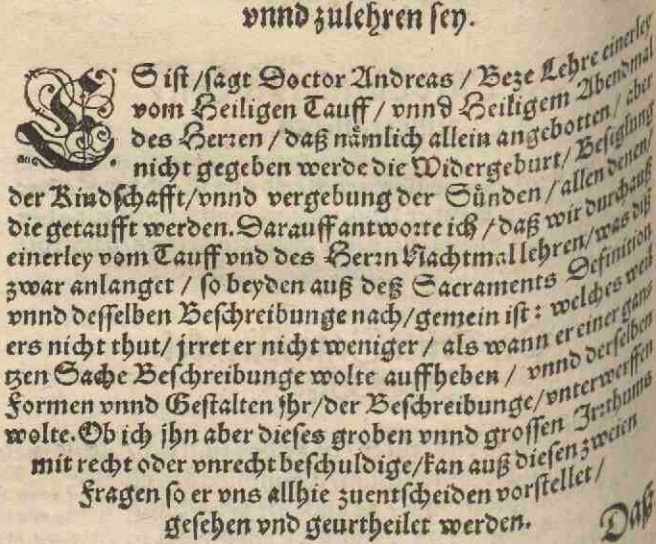 vnnd zulehren sey.
ES ist/sagt Doctor Andreas / Beze Lehre einerley
vom Heiligen Tauff / vnnd Heiligem Abendmal
des Herren / daß nämlich allein angebotten / aber
nicht gegeben werde die Widergeburt / Besiglung
der Kindschafft/vnnd vergebung der Sünden / allen denen/
die getaufft werden. Darauff antworte ich / daß wir durchauß
einerley vom Tauff vnd des Herrn Nachtmal lehren/was diß
zwar anlanget / so beyden auß deß Sacraments Definition
vnnd desselben Beschreibunge nach/gemein ist: welches weil
ers nicht thut/ jrret er nicht weniger / als wann er einer gan
tzen Sache Beschreibunge wolte auffheben / vnnd derselben
Formen vnnd Gestalten jhr/der Beschreibunge/vnterwerffen
wolte. Ob ich jhn aber dieses groben vnnd grossen Jrrthums
mit recht oder vnrecht beschuldige/kan auß diesen zweien
Fragen so er vns allhie zuentscheiden vorstellet /
gesehen vnd geurtheilet werden.
Daß